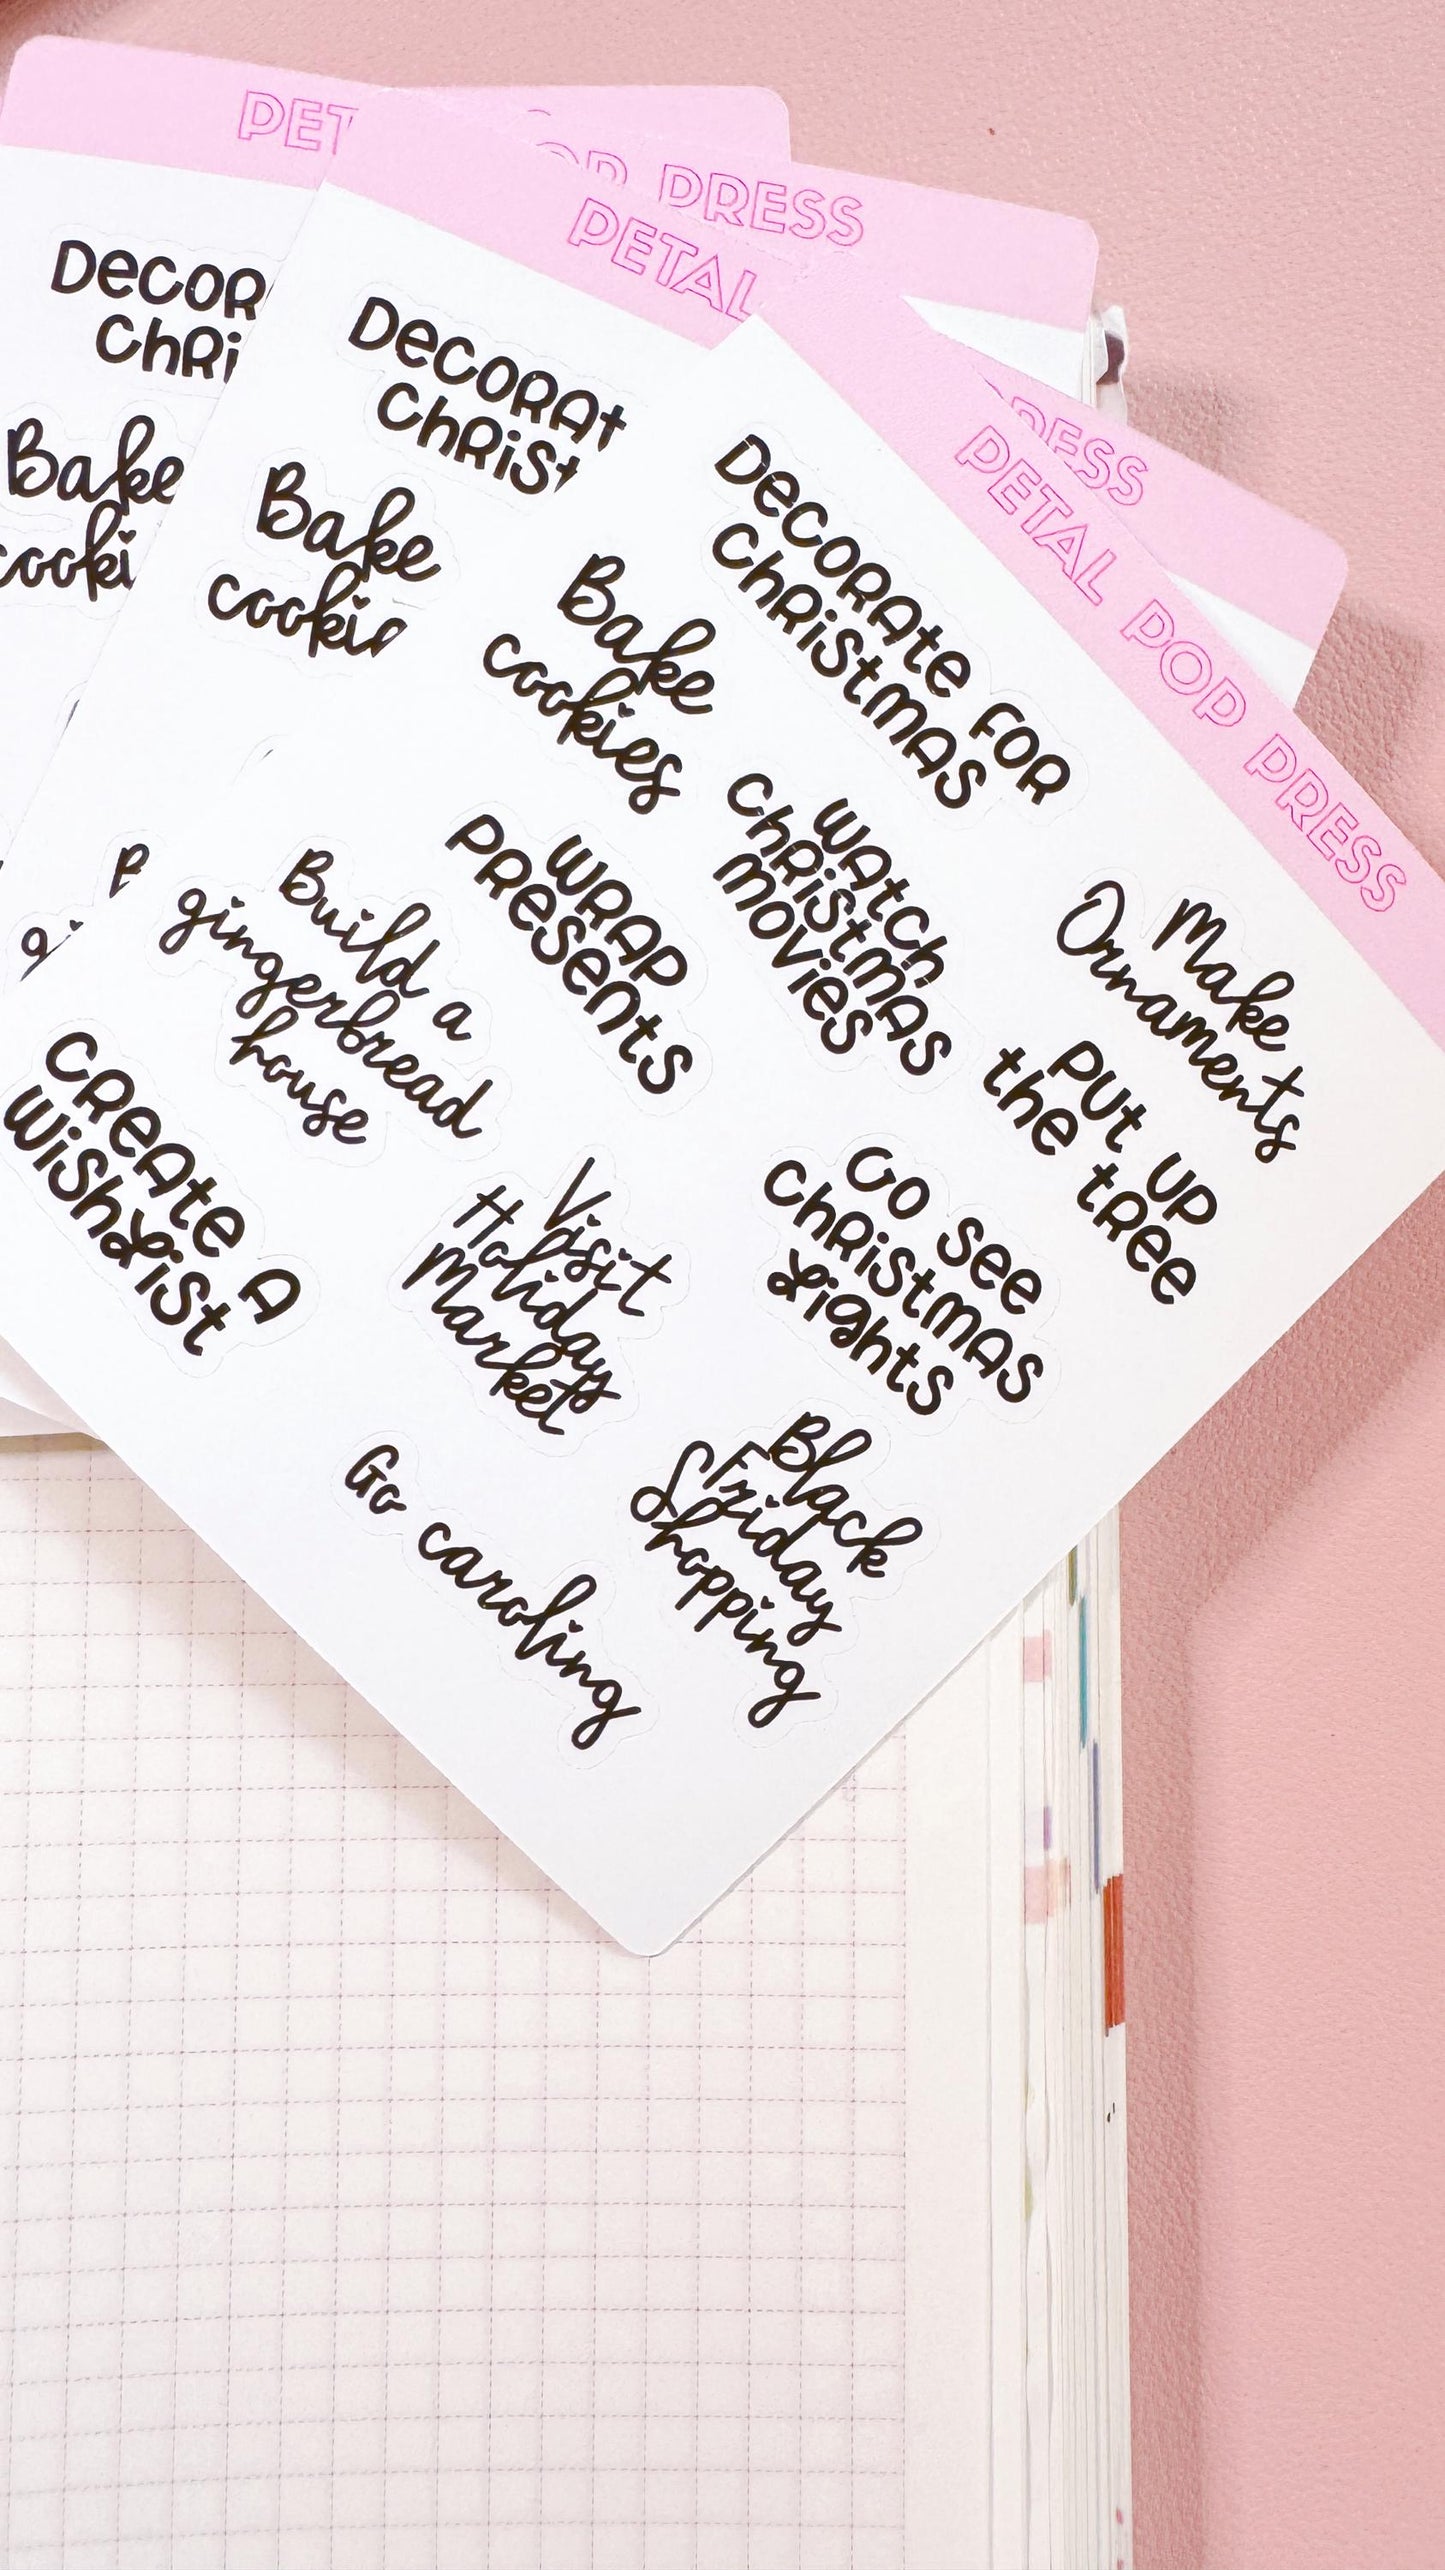 PET
PRESS
PETAL
PRESS
PETAL POP PRESS
DeCOR
ChRi
Bake
cooki
DeCORAt
ChRiSt
Bake
cookie
DeCORAte FOR
ChRiStMAS
Bake
cookies
WAtCh
ChRiStMAS
MOVieS
Make
Ornaments
WRAP
PReSentS
PUt UP
the tRee
Build a
gingerbread
house
GO See
ChRiStMAS
LightS
CReAte A
WiShLiSt
Visit
Holiday
Market
Black
Friday
Shopping
Go caroling